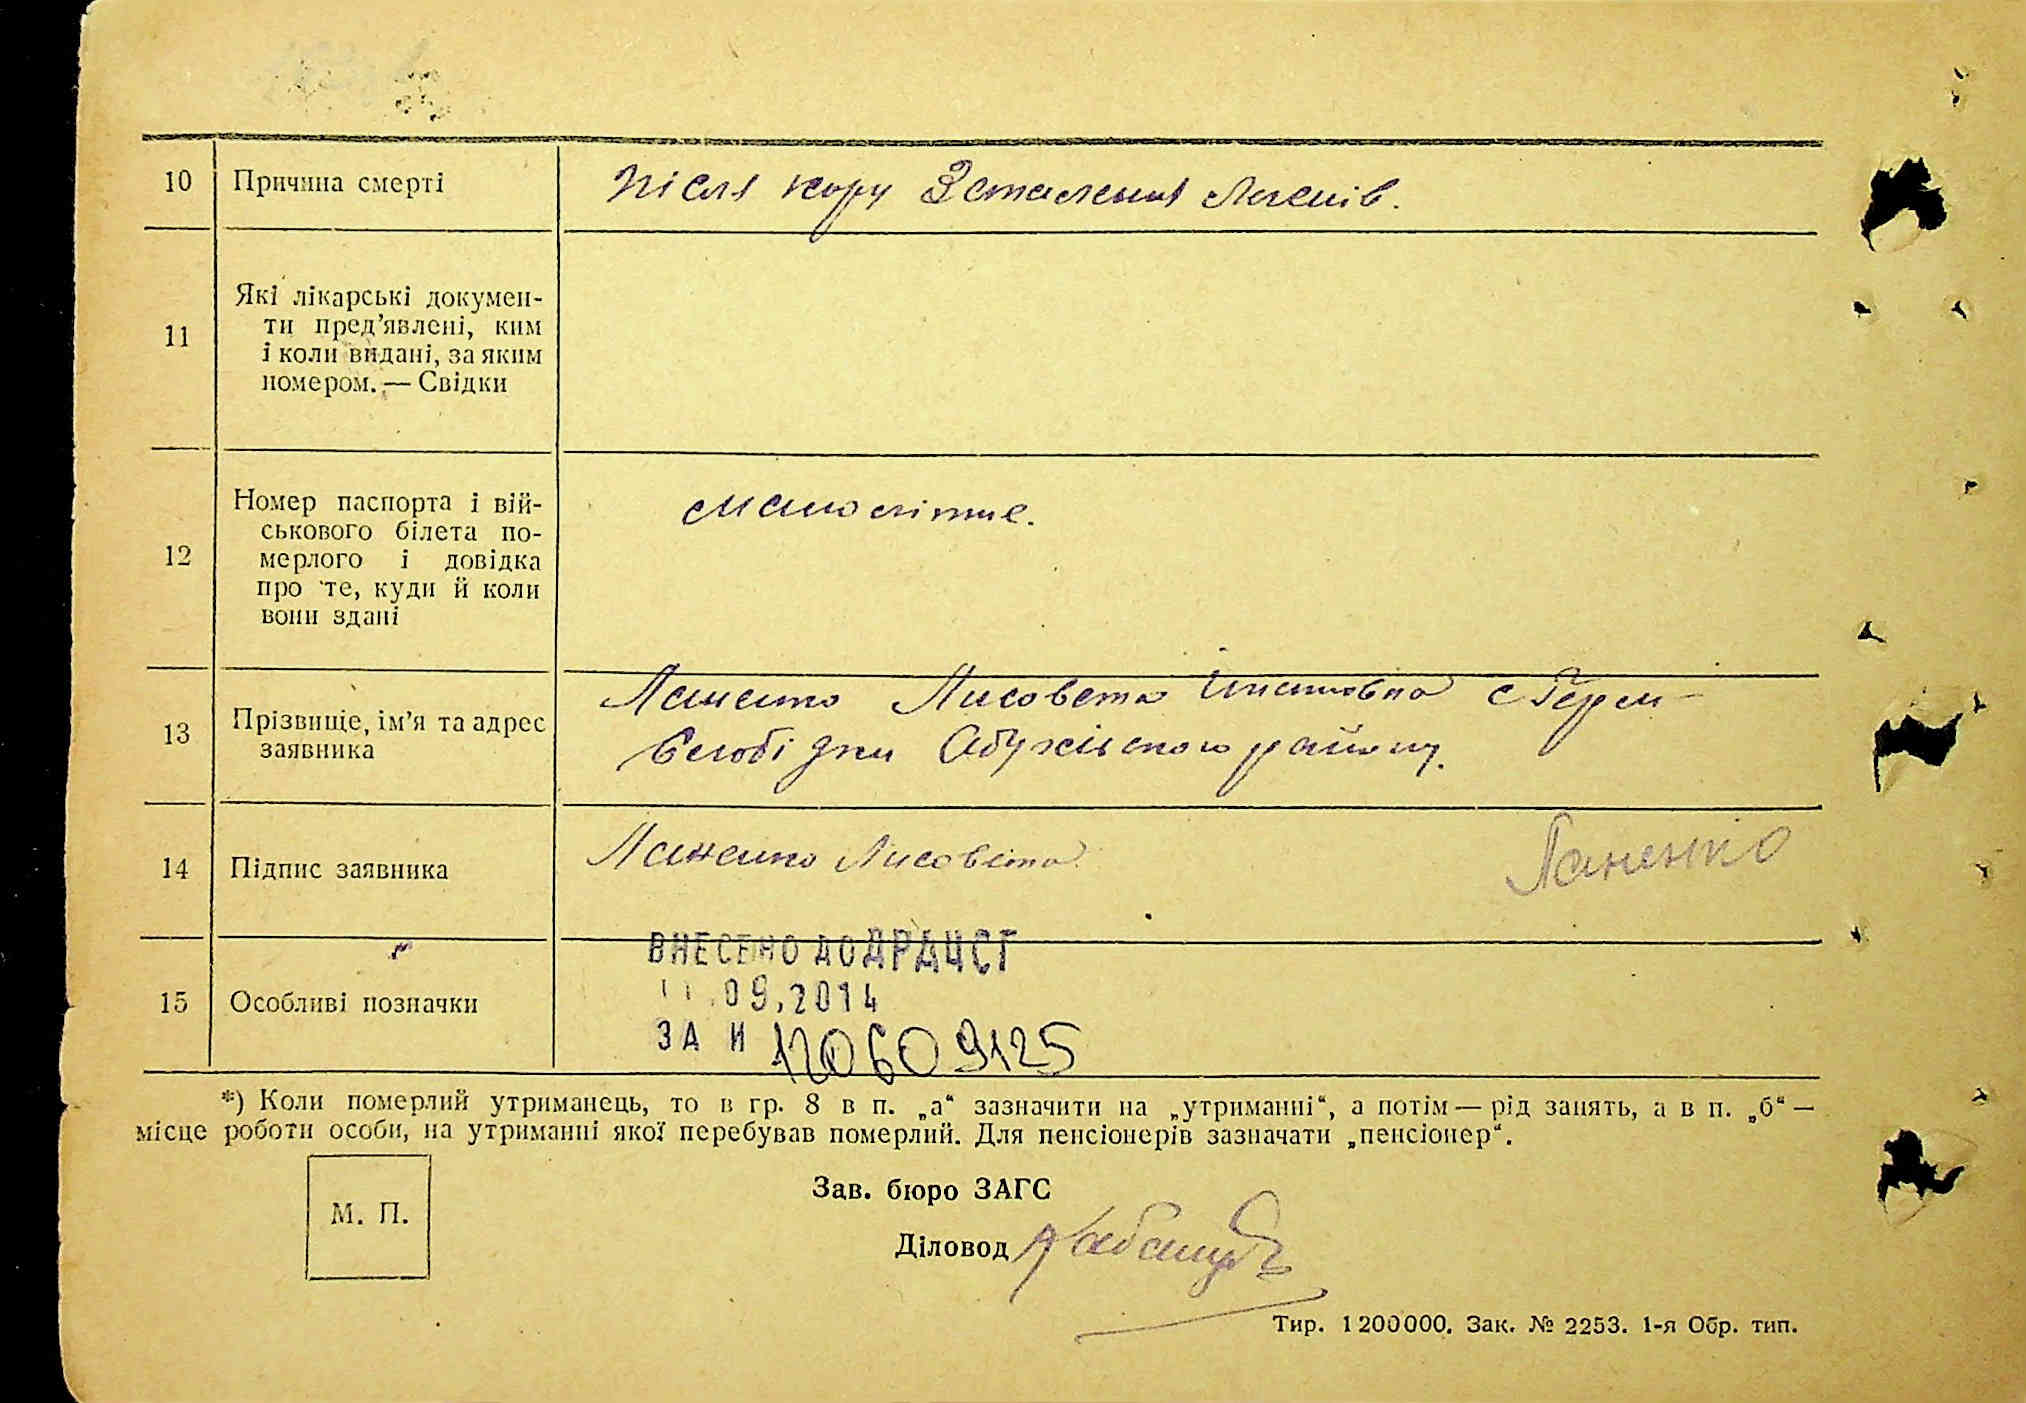 10 Причина смерті Після кору Запалення легенів.
11 Які лікарські докумен-
ти пред’явлені, ким
і коли видані, за яким
номером. — Свідки
12 Номер паспорта і вій-
ськового білета по-
мерлого і довідка
про те, куди й коли
вони здані
малолітнє.
13 Прізвище, ім’я та адрес
заявника
Лисовета с Герм-
Слобідки Обухівського району.
14 Підпис заявника Лисовета
15 Особливі позначки
ВНЕСЕНО ДО ДРАЦСГ
.09.2014
ЗА И 12060 9125
*) Коли померлий утриманець, то в гр. 8 в п. „а“ зазначити на „утриманні“, а потім — рід занять, а в п. „б“ —
місце роботи особи, на утриманні якої перебував померлий. Для пенсіонерів зазначати „пенсіонер“.
М. П.
Зав. бюро ЗАГС
Діловод
Тир. 1200000. Зак. № 2253. 1-я Обр. тип.